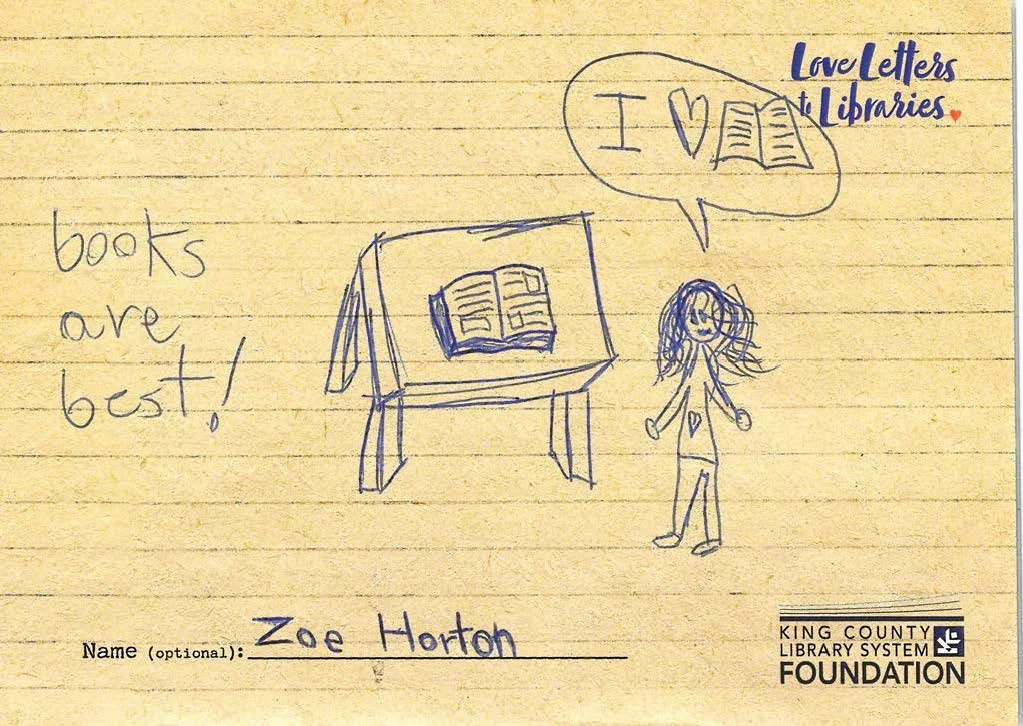 Love Letters
to Libraries
I
books
are
best!
Name (optional): Zoe Horton
KING COUNTY
LIBRARY SYSTEM
FOUNDATION